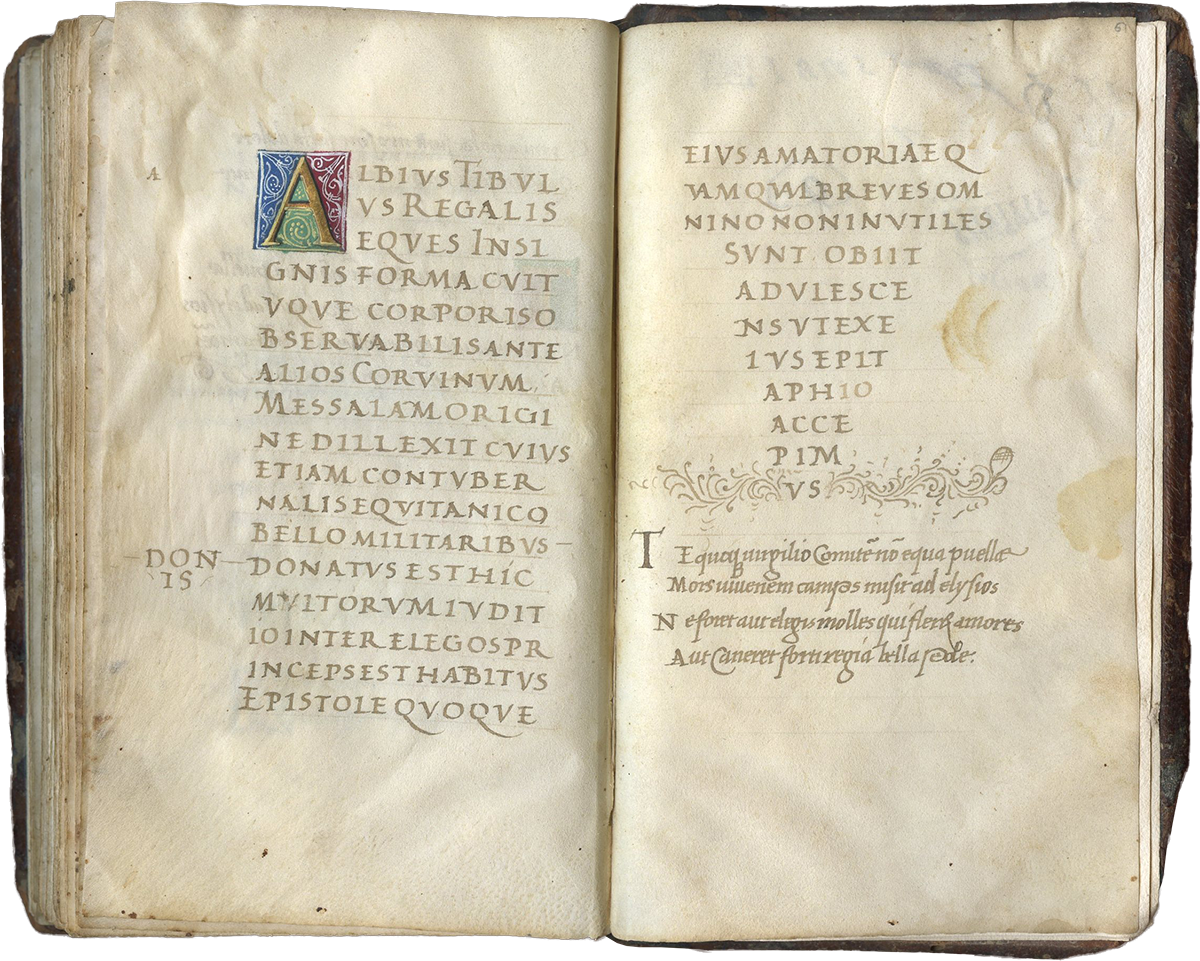 A
ALBIVS TIBVL
VS REGALIS
EQVES INSI
GNIS FORMA CVIT
VQVE CORPORISO
BSERVABILISANTE
ALIOS CORVINVM
MESSALAMORIGI
NE DILLEXIT CVIVS
ETIAM CONTVBER
NALIS EQVITANICO
BELLO MILITARIBVS –
– DON –
IS
DONATVS EST HIC
MVLTORVM IVDIT
IO INTER ELEGOS PR
INCEPS EST HABITVS
EPISTOLE QVOQVE
EIVS AMATORIAE Q
VAMQVVLBREVES OM
NINO NON INVTILES
SVNT OBIIT
ADVLESCE
NS VTEXE
IVS EPIT
APHIO
ACCE
PIM
VS
Te quoq uirgilio Comite nō equa puellæ
Mors iuuenem campos misit ad elysios
Ne foret aut elegis molles qui fleret amores
Aut Caneret forti regia bella pede.